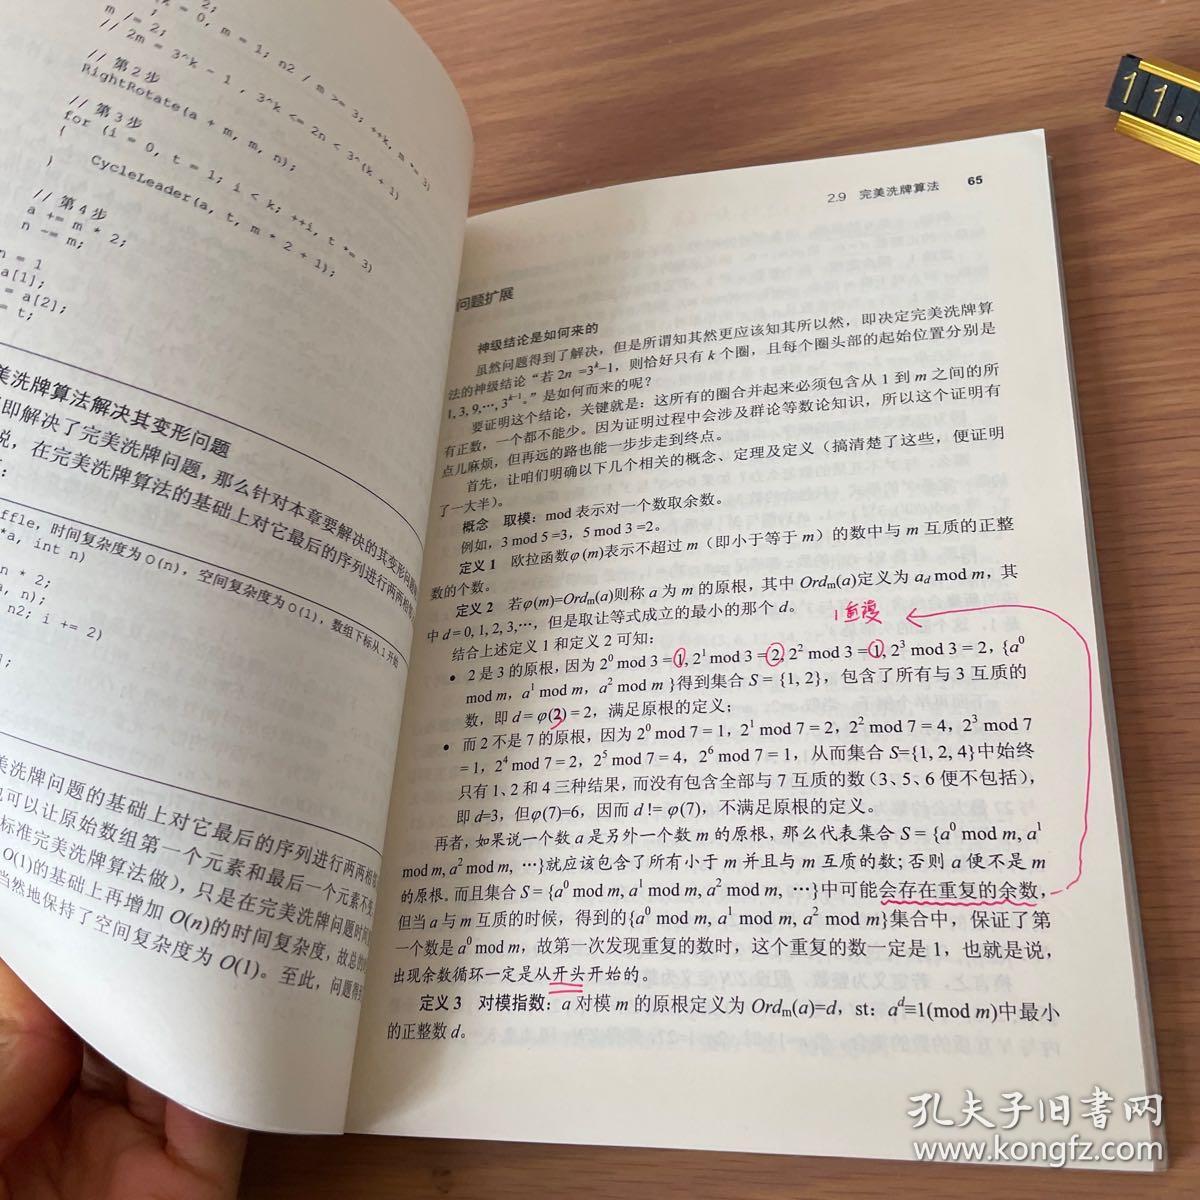 m /= 2;
// 2m = 3^k - 1 , 3^k <= 2n < 3^(k + 1)
// 第2步
RightRotate(a + m, m, n);
// 第3步
for (i = 0, t = 1; i < k; ++i, t *= 3)
{
CycleLeader(a, t, m * 2 + 1);
}
// 第4步
a += m * 2;
n -= m;
n = 1
a[1];
= a[2];
= t;
美洗牌算法解决其变形问题
即解决了完美洗牌问题,那么针对本章要解决的其变形问题
说,在完美洗牌算法的基础上对它最后的序列进行两两相邻
:
ffle,时间复杂度为O(n),空间复杂度为O(1),数组下标从1开始
*a, int n)
n * 2;
a, n);
n2; i += 2)
美洗牌问题的基础上对它最后的序列进行两两相邻
也可以让原始数组第一个元素和最后一个元素不变
标准完美洗牌算法做),只是在完美洗牌问题时间
O(1)的基础上再增加 O(n)的时间复杂度,故总的
当然地保持了空间复杂度为 O(1)。至此,问题得
2.9 完美洗牌算法 65
问题扩展
神级结论是如何来的
虽然问题得到了解决,但是所谓知其然更应该知其所以然,即决定完美洗牌算
法的神级结论“若 2n =3^k−1,则恰好只有 k 个圈,且每个圈头部的起始位置分别是
1, 3, 9,…, 3^k−1。”是如何而来的呢?
要证明这个结论,关键就是:这所有的圈合并起来必须包含从 1 到 m 之间的所
有正数,一个都不能少。因为证明过程中会涉及群论等数论知识,所以这个证明有
点儿麻烦,但再远的路也能一步步走到终点。
首先,让咱们明确以下几个相关的概念、定理及定义(搞清楚了这些,便证明
了一大半)。
概念 取模:mod 表示对一个数取余数。
例如,3 mod 5 =3,5 mod 3 =2。
定义 1 欧拉函数φ (m)表示不超过 m(即小于等于 m)的数中与 m 互质的正整
数的个数。
定义 2 若φ(m)=Ordm(a)则称 a 为 m 的原根,其中 Ordm(a)定义为 ad mod m,其
中 d = 0, 1, 2, 3,…,但是取让等式成立的最小的那个 d。
结合上述定义 1 和定义 2 可知:
• 2 是 3 的原根,因为 2^0 mod 3 = 1, 2^1 mod 3 = 2, 2^2 mod 3 = 1, 2^3 mod 3 = 2,{a^0
mod m,a^1 mod m,a^2 mod m }得到集合 S = {1, 2},包含了所有与 3 互质的
数,即 d = φ(2) = 2,满足原根的定义;
• 而 2 不是 7 的原根,因为 2^0 mod 7 = 1,2^1 mod 7 = 2,2^2 mod 7 = 4,2^3 mod 7
= 1,2^4 mod 7 = 2,2^5 mod 7 = 4,2^6 mod 7 = 1,从而集合 S={1, 2, 4}中始终
只有 1、2 和 4 三种结果,而没有包含全部与 7 互质的数(3、5、6 便不包括),
即 d=3,但φ(7)=6,因而 d != φ(7),不满足原根的定义。
再者,如果说一个数 a 是另外一个数 m 的原根,那么代表集合 S = {a^0 mod m, a^1
mod m, a^2 mod m, …}就应该包含了所有小于 m 并且与 m 互质的数;否则 a 便不是 m
的原根。而且集合 S = {a^0 mod m, a^1 mod m, a^2 mod m, …}中可能会存在重复的余数,
但当 a 与 m 互质的时候,得到的{a^0 mod m, a^1 mod m, a^2 mod m}集合中,保证了第
一个数是 a^0 mod m,故第一次发现重复的数时,这个重复的数一定是 1,也就是说,
出现余数循环一定是从开头开始的。
定义 3 对模指数:a 对模 m 的原根定义为 Ordm(a)=d,st:a^d≡1(mod m)中最小
的正整数 d。
11.
孔夫子旧书网
www.kongfz.com